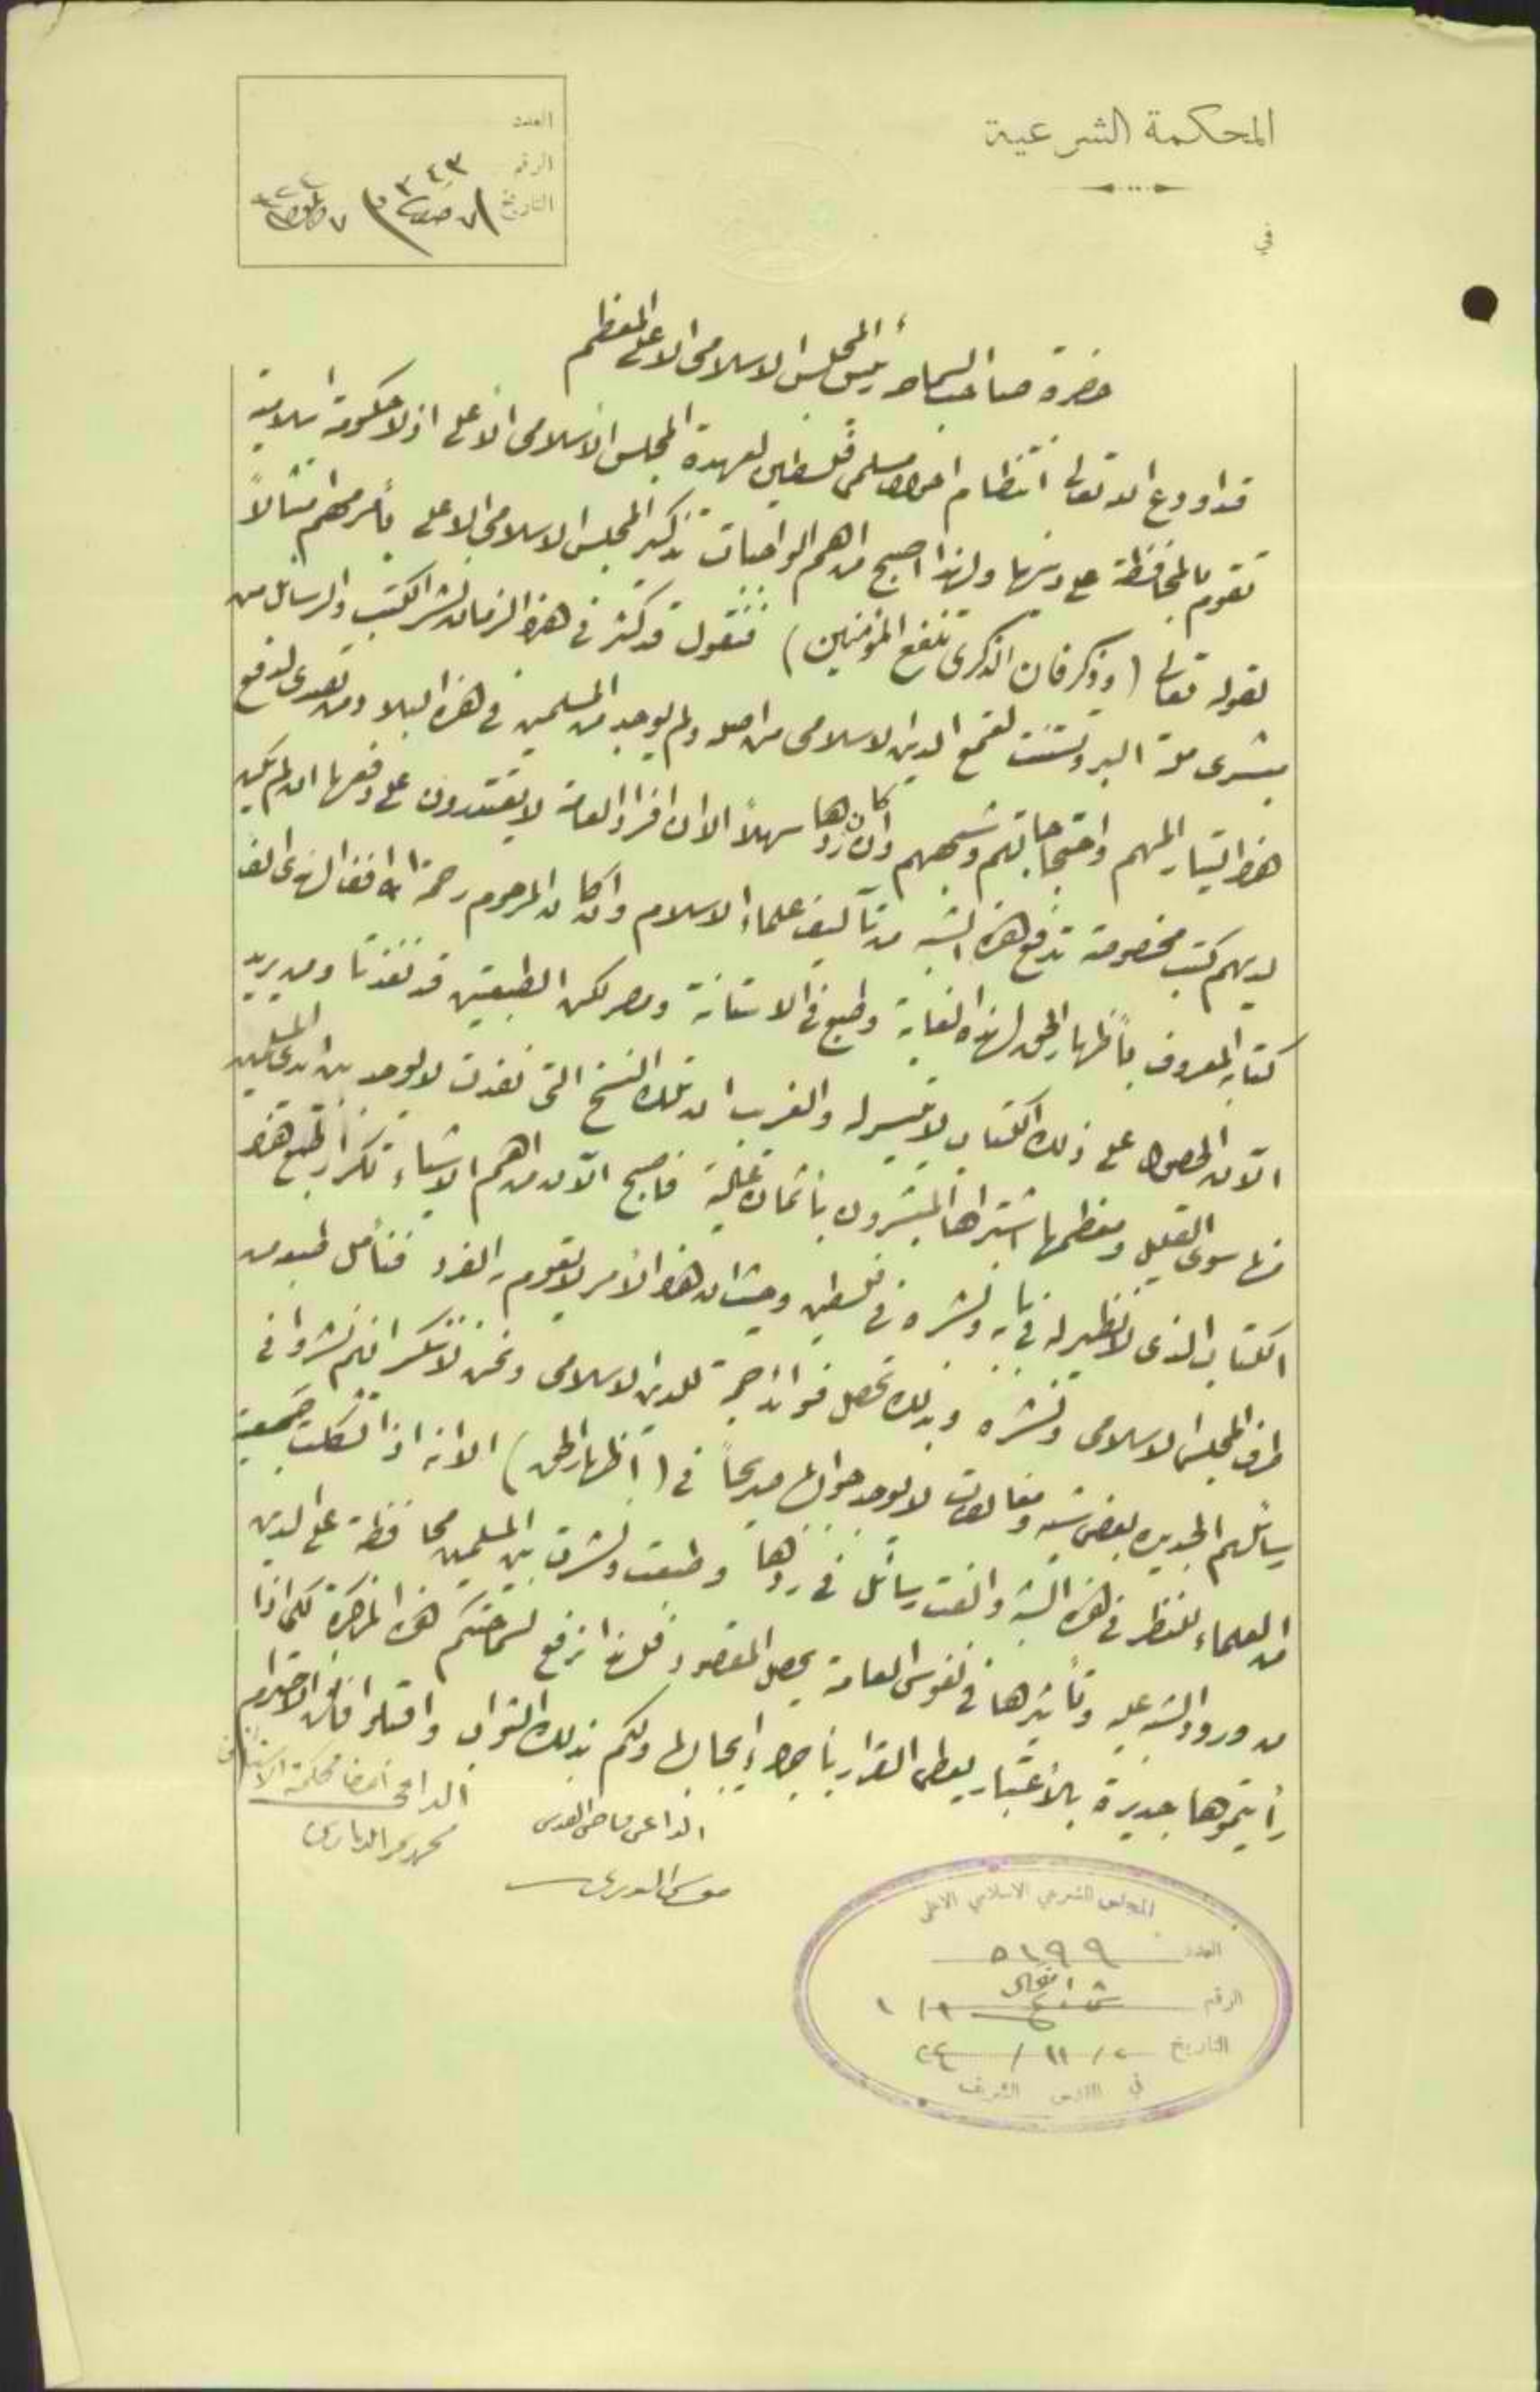 المحكمة الشرعية
في
العدد
الرقم ٣٤٣
التاريخ ٧
حضرة صاحب السماحة رئيس المجلس الاسلامي الاعلى المعظم
قد اودع الله تعالى انتظام احوال مسلمي فلسطين لعهدة المجلس الاسلامي الاعلى اذ لا حكومة اسلامية
تقوم بالمحافظة على دينها ولهذا اصبح من اهم الواجبات تذكير المجلس الاسلامي الاعلى بأمر مهم امتثالاً
لقوله تعالى (وذكر فان الذكرى تنفع المؤمنين) فنقول قد كثر في هذا الزمان نشر الكتب والرسائل من
مبشري ملة البروتستنت لقمع الدين الاسلامي من اصله ولم يوجد من المسلمين في هذه البلاد من تصدى لدفع
هذا التيار المهم واحتجاجاتهم وشبههم وان كان ردها سهلاً الا ان افراد العامة لا يقتدرون على دفعها ان لم يكن
لديهم كتب مخصوصة تدفع هذه الشبه من تآليف علماء الاسلام وان كان المرحوم رحمة الله افندي الهندي الف
كتابه المعروف باظهار الحق لهذه الغاية وطبع في الاستانة ومصر لكن الطبعتين قد نفدتا ومن يريد
الآن الحصول على ذلك الكتاب لا يتيسر له والغريب ان تلك النسخ التي نفدت لا يوجد بين ايدي المسلمين
منها سوى القليل ومعظمها اشتراها المبشرون باثمان غالية فاصبح الآن من اهم الاشياء تكرار طبع هذا
الكتاب الذي لا نظير له في بابه ونشره في فلسطين وحيث ان هذا الأمر لا يقوم به الفرد فنأمل طبعه من
طرف المجلس الاسلامي ونشره وبذلك تحصل فوائد جمة للدين الاسلامي ونحن لا ننكر انهم نشروا في
رسائلهم الجديدة بعض شبه ومغالطات لا يوجد جوابها صريحاً في (اظهار الحق) الا انه اذا تشكلت جمعية
من العلماء للنظر في هذه الشبه والفت رسائل في ردها وطبعت ونشرت بين المسلمين محافظة على الدين
من ورود الشبه عليه وتأثيرها في نفوس العامة يحصل المقصود فلهذا نرفع لسماحتكم هذه المذكرة لكي اذا
رأيتموها جديرة بالاعتبار يعطى القرار باجراء ايجابها ولكم بذلك الثواب واقبلوا فائق الاحترام
الداعي قاضي القدس
الداعي اعضا محكمة الاستئناف
المجلس الشرعي الاسلامي الاعلى
العدد ٥١٩٩
الرقم
التاريخ ٢ / ١١ / ٢٤
في القدس الشريف